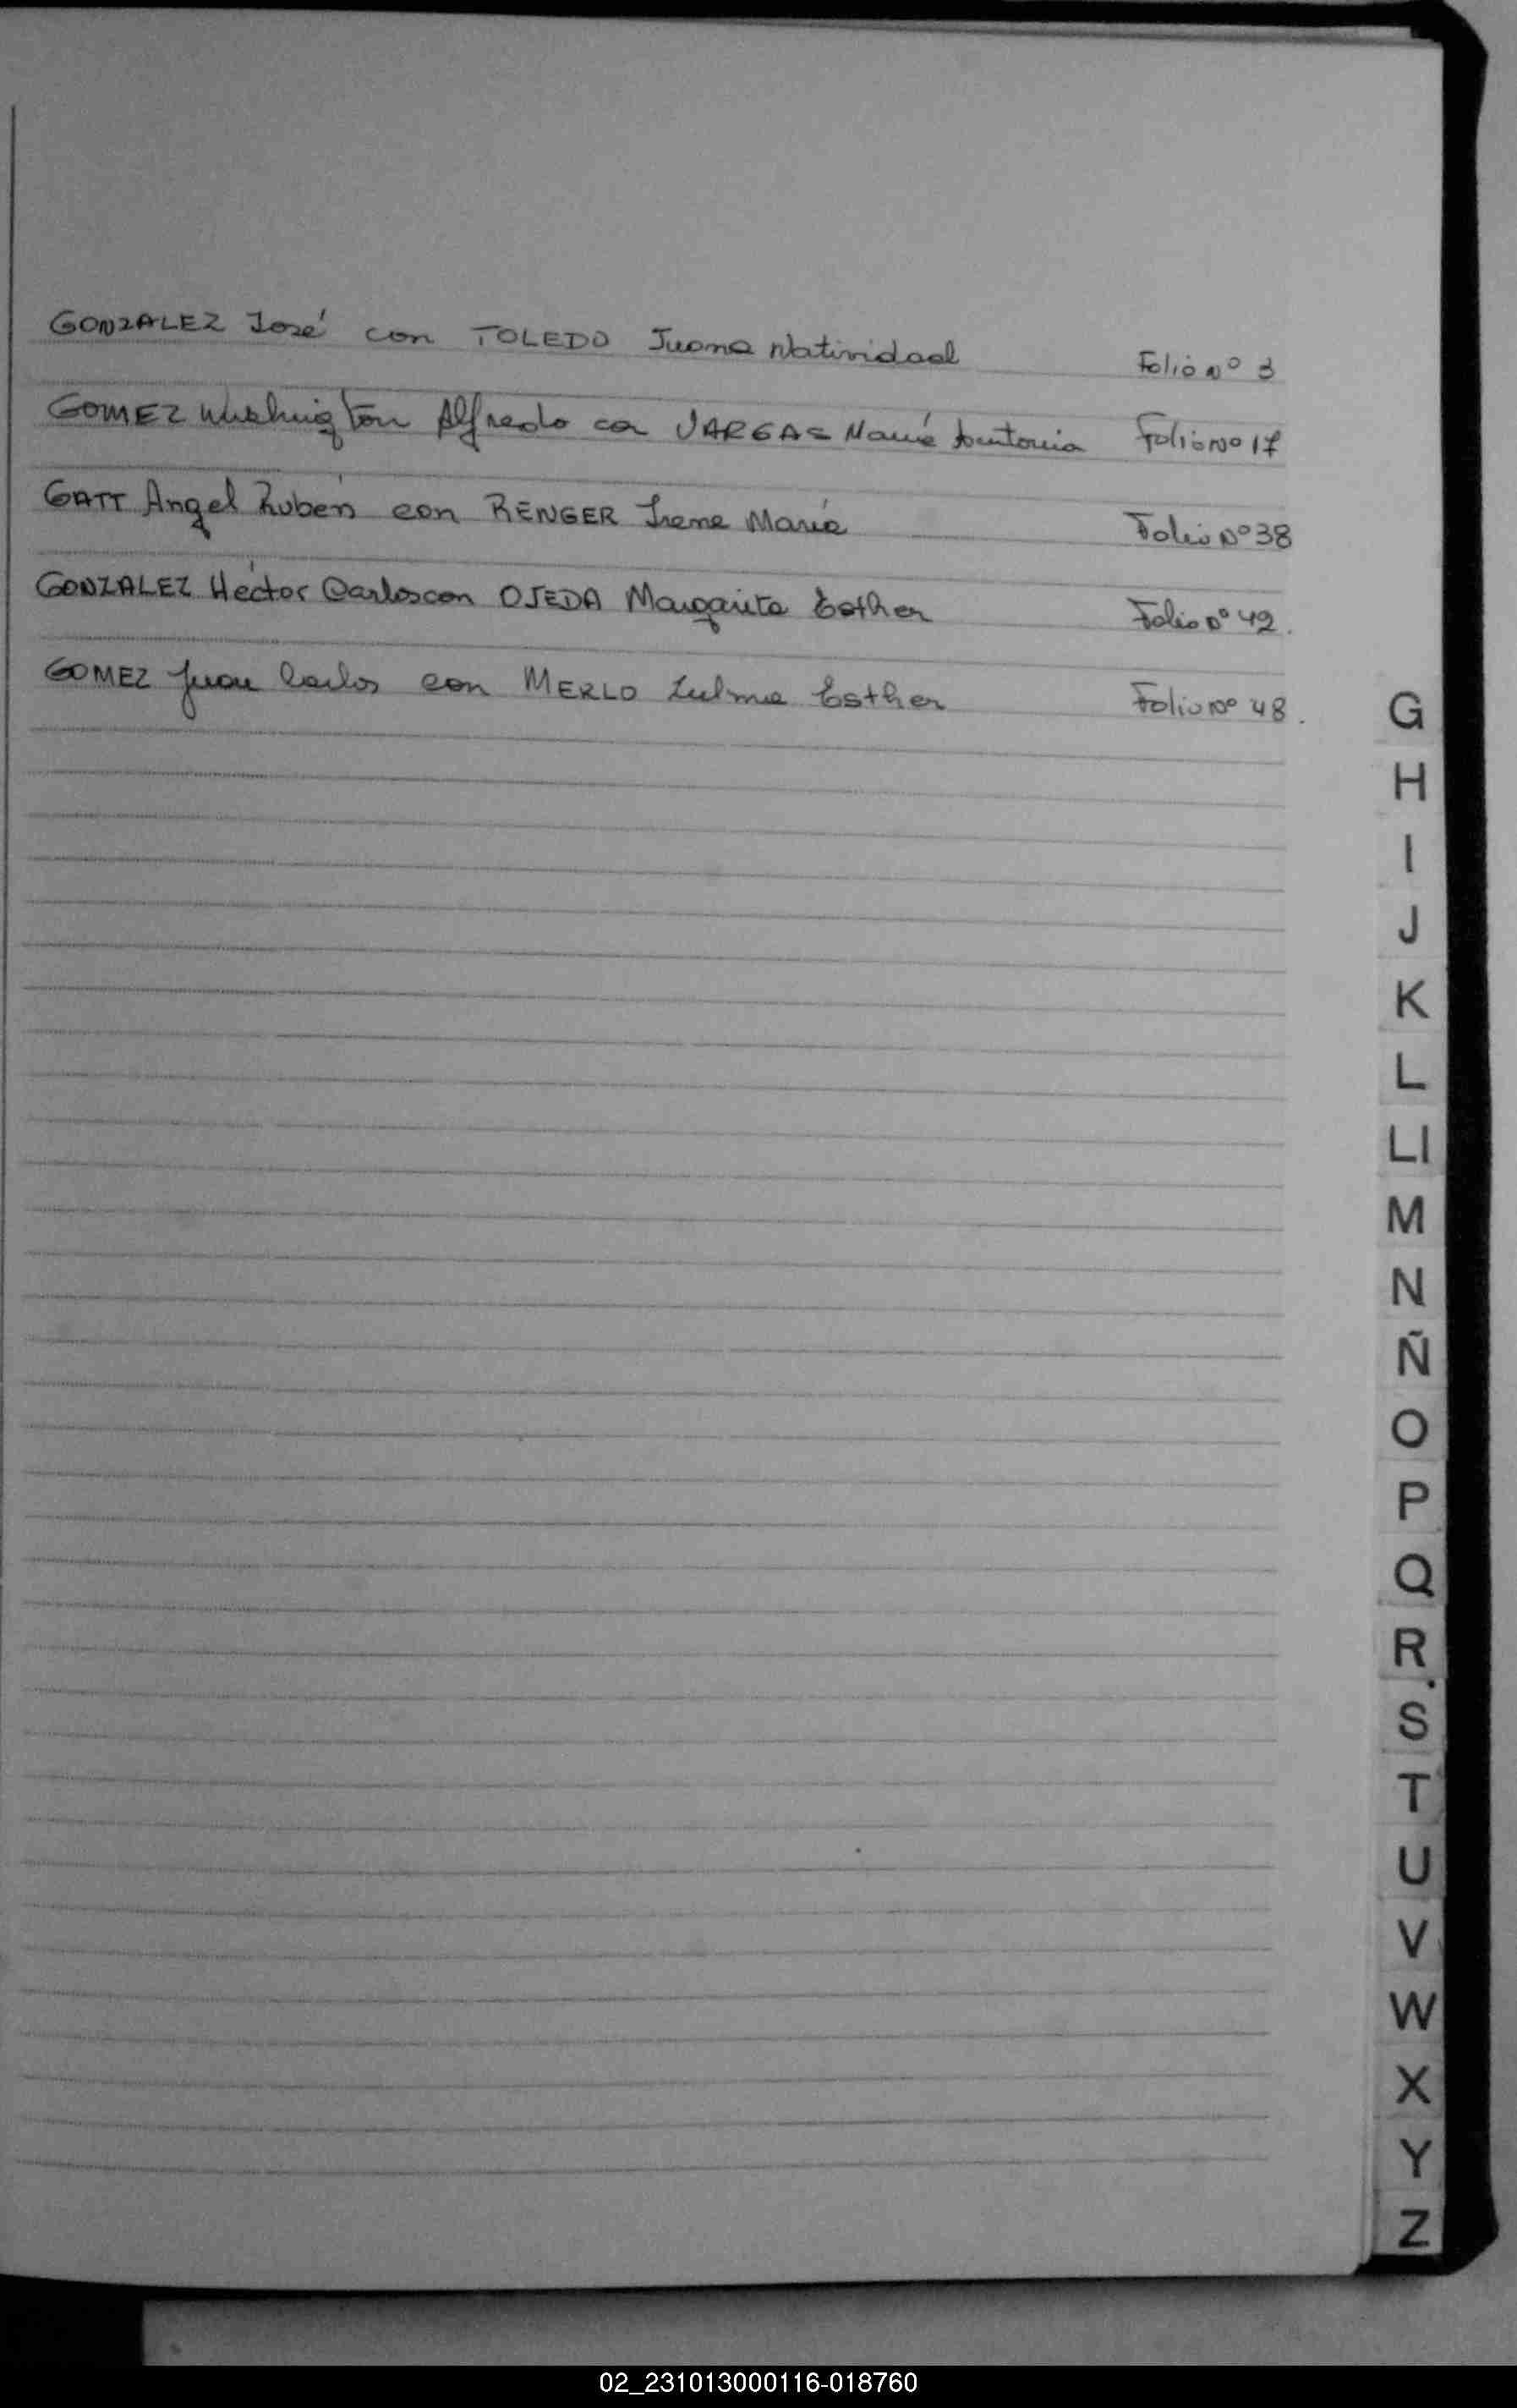 GONZALEZ José con TOLEDO Juana Natividad Folio Nº 3
GOMEZ Washington Alfredo con VARGAS María Antonia Folio Nº 17
GATT Angel Rubén con RENGER Irene María Folio Nº 38
GONZALEZ Héctor Carlos con OJEDA Margarita Esther Folio Nº 42.
GOMEZ Juan Carlos con MERLO Zulma Esther Folio Nº 48.
G
H
I
J
K
L
Ll
M
N
Ñ
O
P
Q
R
S
T
U
V
W
X
Y
Z
02_231013000116-018760